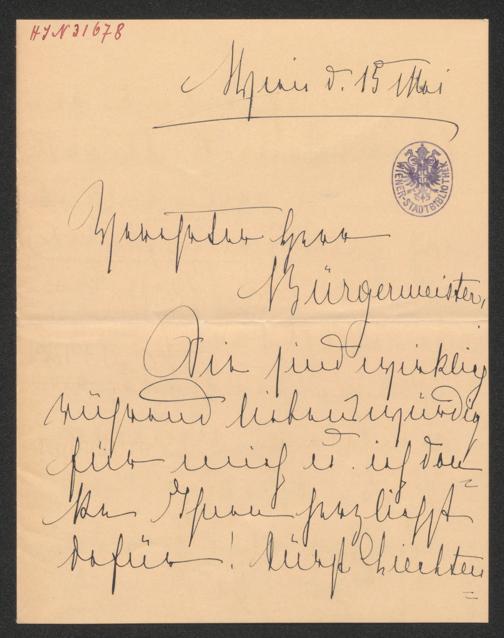 HIN 31678
Wien d. 15 Mai
WIENER-STADTBIBLIOTHEK
Verehrter Herr
Bürgermeister,
Sie sind wirklich
rührend liebenswürdig
für mich u. ich dan=
ke Ihnen herzlichst
dafür! Fürst Liechten=